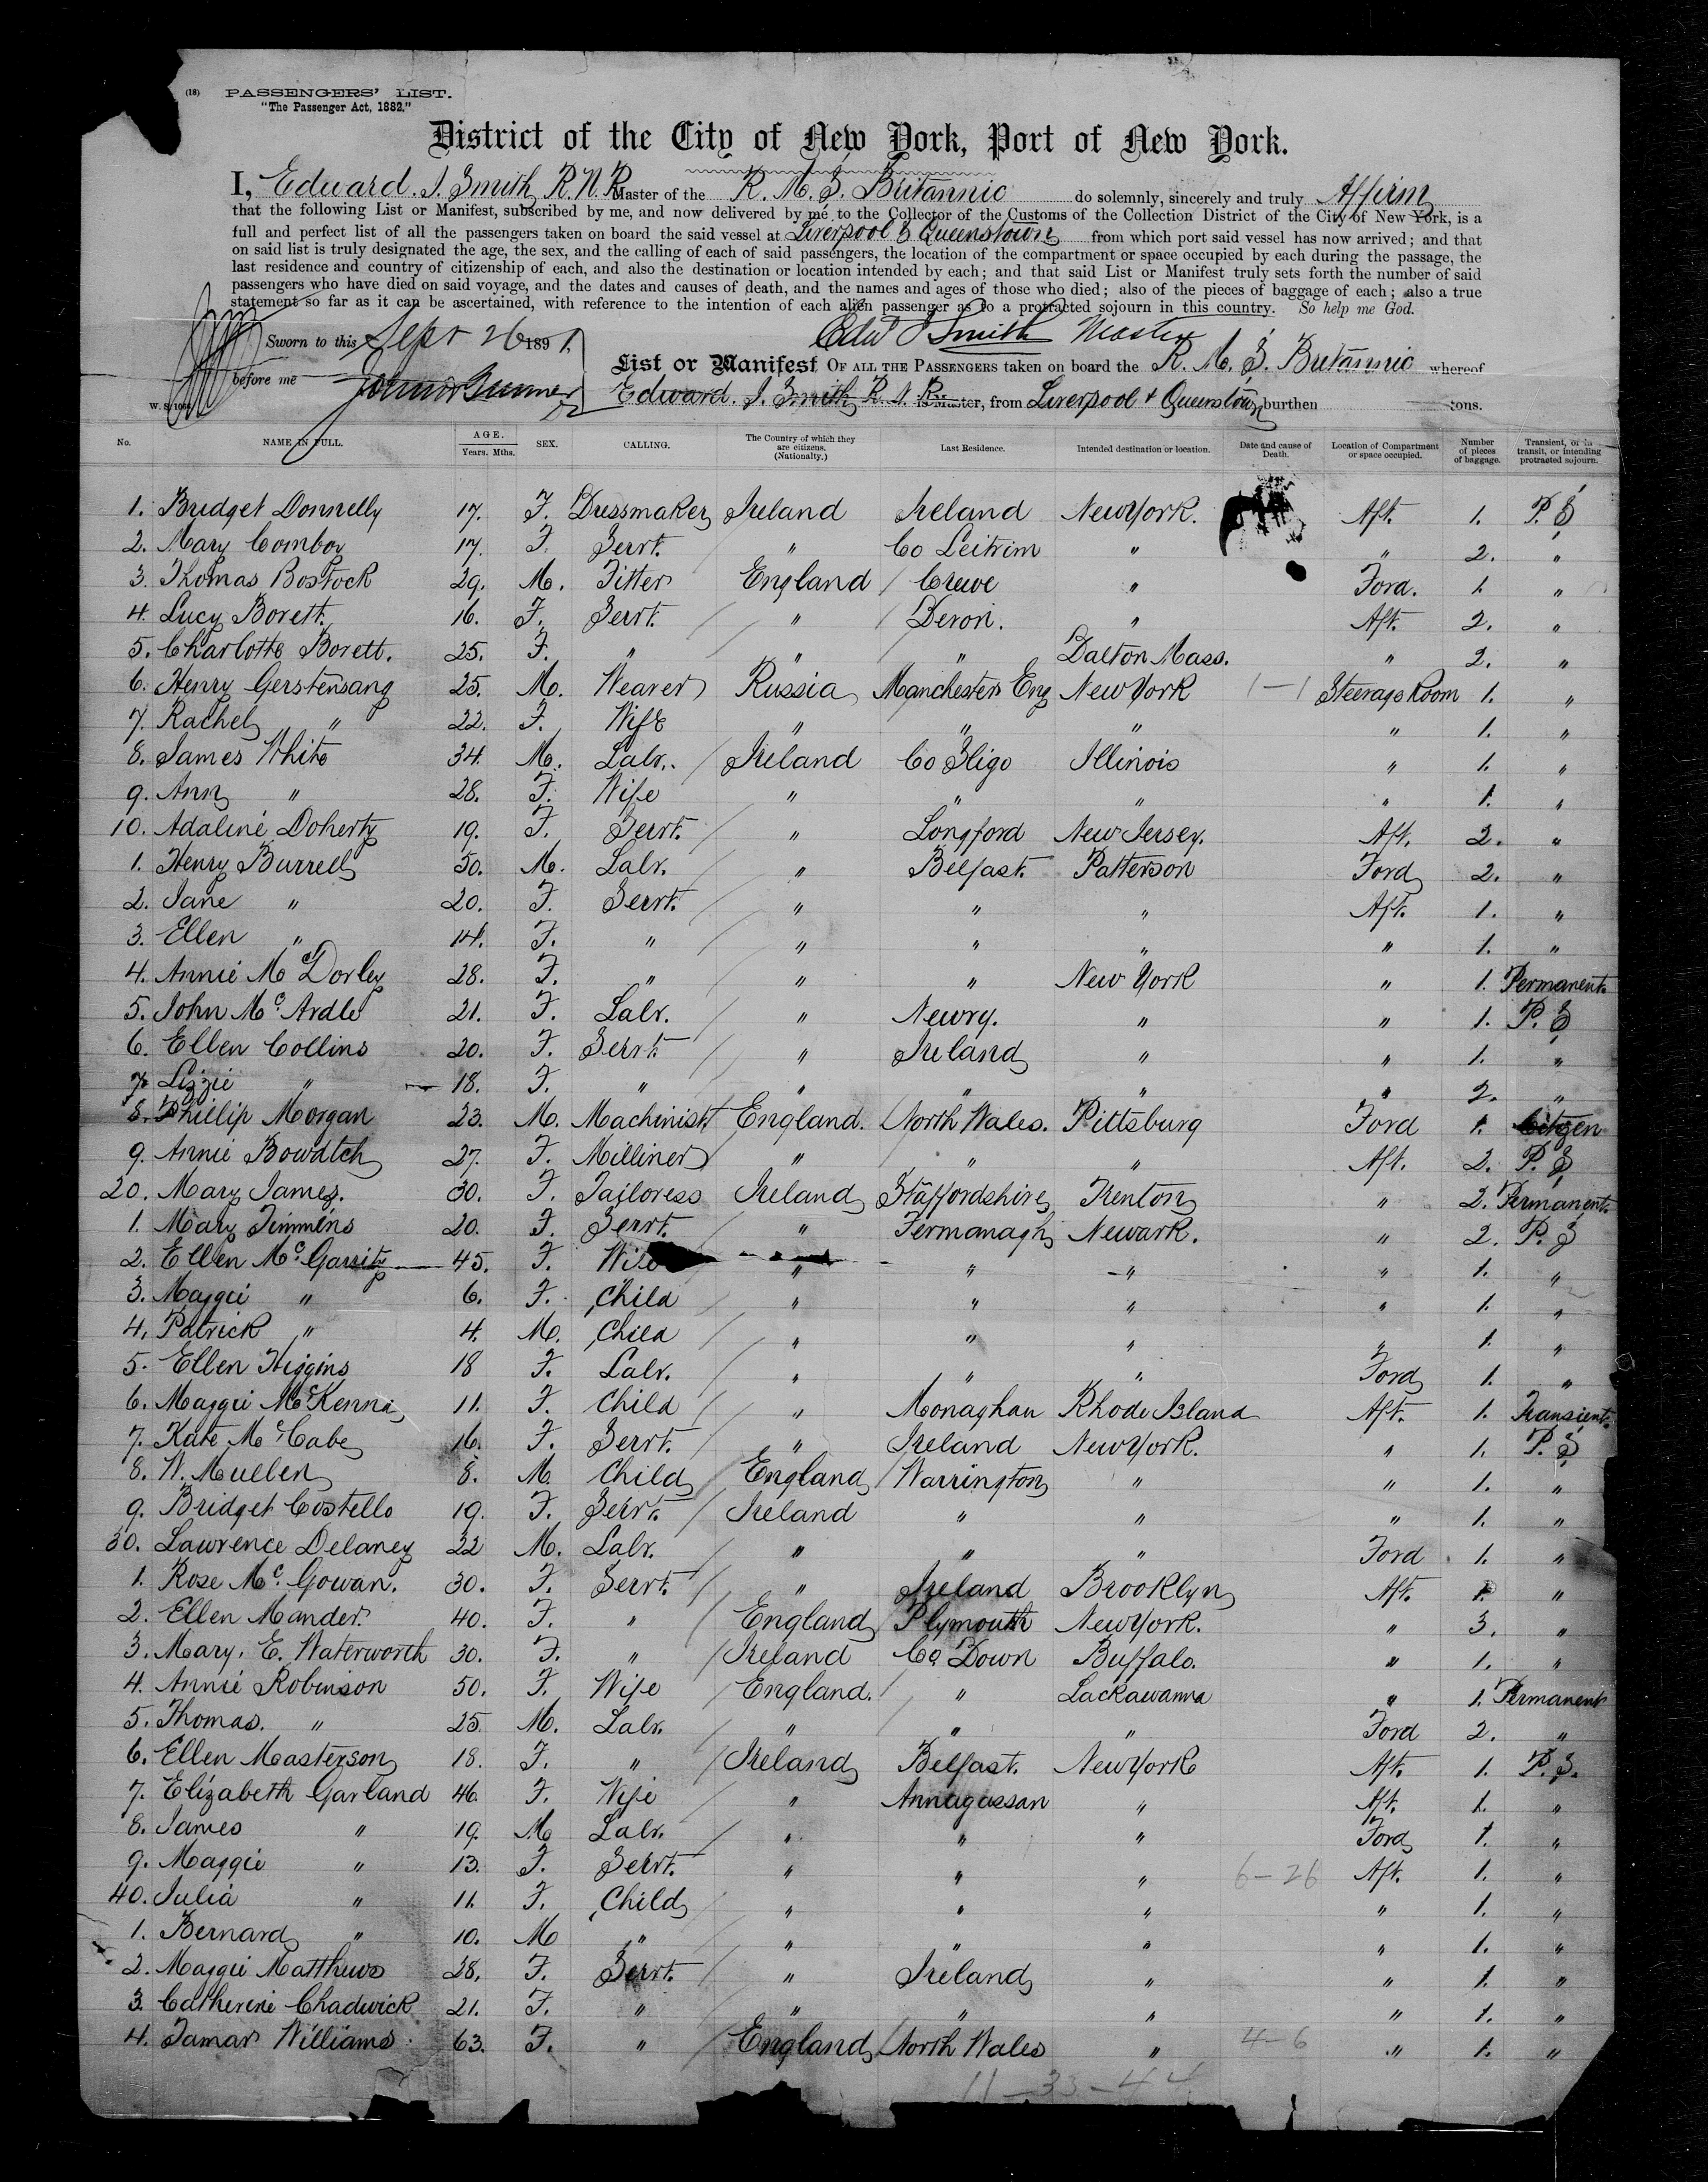 (18) PASSENGERS' LIST.
"The Passenger Act, 1882."
District of the City of New York, Port of New York.
I, Edward. J. Smith, R.N.R. Master of the R. M. S. Britannic do solemnly, sincerely and truly Affirm
that the following List or Manifest, subscribed by me, and now delivered by me to the Collector of the Customs of the Collection District of the City of New York, is a
full and perfect list of all the passengers taken on board the said vessel at Liverpool & Queenstown from which port said vessel has now arrived; and that
on said list is truly designated the age, the sex, and the calling of each of said passengers, the location of the compartment or space occupied by each during the passage, the
last residence and country of citizenship of each, and also the destination or location intended by each; and that said List or Manifest truly sets forth the number of said
passengers who have died on said voyage, and the dates and causes of death, and the names and ages of those who died; also of the pieces of baggage of each; also a true
statement so far as it can be ascertained, with reference to the intention of each alien passenger as to a protracted sojourn in this country. So help me God.
Sworn to this Sept 26 1891. Edwd J Smith Master
before me
List or Manifest OF ALL THE PASSENGERS taken on board the R. M. S. Britannic whereof
Edward. J. Smith R. N. R. is Master, from Liverpool & Queenstown, burthen tons.
No. NAME IN FULL. AGE. Years. Mths. SEX. CALLING. The Country of which they are citizens. (Nationality.) Last Residence. Intended destination or location. Date and cause of Death. Location of Compartment or space occupied. Number of pieces of baggage. Transient, or in transit, or intending protracted sojourn.
1. Bridget Donnelly 17. F. Dressmaker Ireland Ireland New York. Aft. 1. P. S
2. Mary Comboy 17. F. Servt. " Co Leitrim " " 2. "
3. Thomas Bostock 29. M. Fitter England / Crewe " Ford. 1. "
4. Lucy Borett. 16. F. Servt. / " / Devon. " Aft. 2. "
5. Charlotte Borett. 25. F. " / " / " Dalton Mass. " 2. "
6. Henry Gerstensang 25. M. Weaver Russia Manchester Eng New York 1-1 Steerage Room 1. "
7. Rachel " 22. F. Wife " " " " 1. "
8. James White 34. M. Labr. Ireland Co Sligo Illinois " 1. "
9. Ann " 28. F. Wife " " " " 1. "
10. Adaline Doherty 19. F. Servt. / " Longford New Jersey. Aft. 2. "
1. Henry Burrell 50. M. Labr. / " Belfast. Patterson Ford 2. "
2. Jane " 20. F. Servt. / " " " Aft. 1. "
3. Ellen " 14. F. " / " " " " 1. "
4. Annie McDorley 28. F. " / " " New York " 1. Permanent.
5. John Mc Ardle 21. F. Labr. / " Newry. " " 1. P. S
6. Ellen Collins 20. F. Servt. / " Ireland " " 1. "
7. Lizzie " 18. F. " / " " " " 2. "
8. Phillip Morgan 23. M. Machinist England. North Wales. Pittsburg Ford 1. Citizen
9. Annie Bowdtch 27. F. Milliner " " " Aft. 2. P. S
20. Mary James. 30. F. Tailoress Ireland Staffordshire Trenton " 2. Permanent.
1. Mary Timmins 20. F. Servt. / " Fermanagh Newark. " 2. P. S
2. Ellen Mc Garrity 45. F. Wife " " " " 1. "
3. Maggie " 6. F. Child / " " " " 1. "
4. Patrick " 4. M. Child / " " " " 1. "
5. Ellen Higgins 18 F. Labr. / " " " Ford 1. "
6. Maggie McKenna 11. F. Child / " Monaghan Rhode Island Aft. 1. Transient.
7. Kate Mc Cabe 16. F. Servt. / " Ireland New York. " 1. P. S
8. W. Mullen 8. M Child / England Warrington " " 1. "
9. Bridget Costello 19. F. Servt. / Ireland " " " 1. "
30. Lawrence Delaney 22 M. Labr. / " " " Ford 1. "
1. Rose Mc. Gowan. 30. F. Servt. / " Ireland Brooklyn Aft. 1. "
2. Ellen Mander. 40. F. " / England Plymouth New York. " 3. "
3. Mary. E. Waterworth 30. F. " / Ireland Co Down Buffalo. " 1. "
4. Annie Robinson 50. F. Wife / England. / " Lackawanna " 1. Permanent
5. Thomas. " 25 M. Labr. / " / " " Ford 2. "
6. Ellen Masterson 18. F. " / Ireland Belfast. New York Aft. 1. P. S.
7. Elizabeth Garland 46. F. Wife / " Annagassan " Aft. 1. "
8. James " 19. M Labr. / " " " Ford 1. "
9. Maggie " 13. F. Servt. / " " " 6-26 Aft. 1. "
40. Julia " 11. F. Child / " " " " 1. "
1. Bernard " 10. M " / " " " " 1. "
2. Maggie Matthews 28. F. Servt. / " Ireland " " 1. "
3. Catherine Chadwick 21. F. " / " " " " 1. "
4. Tamar Williams 63. F. " / England / North Wales " 4-6 " 1. "
11-33-44